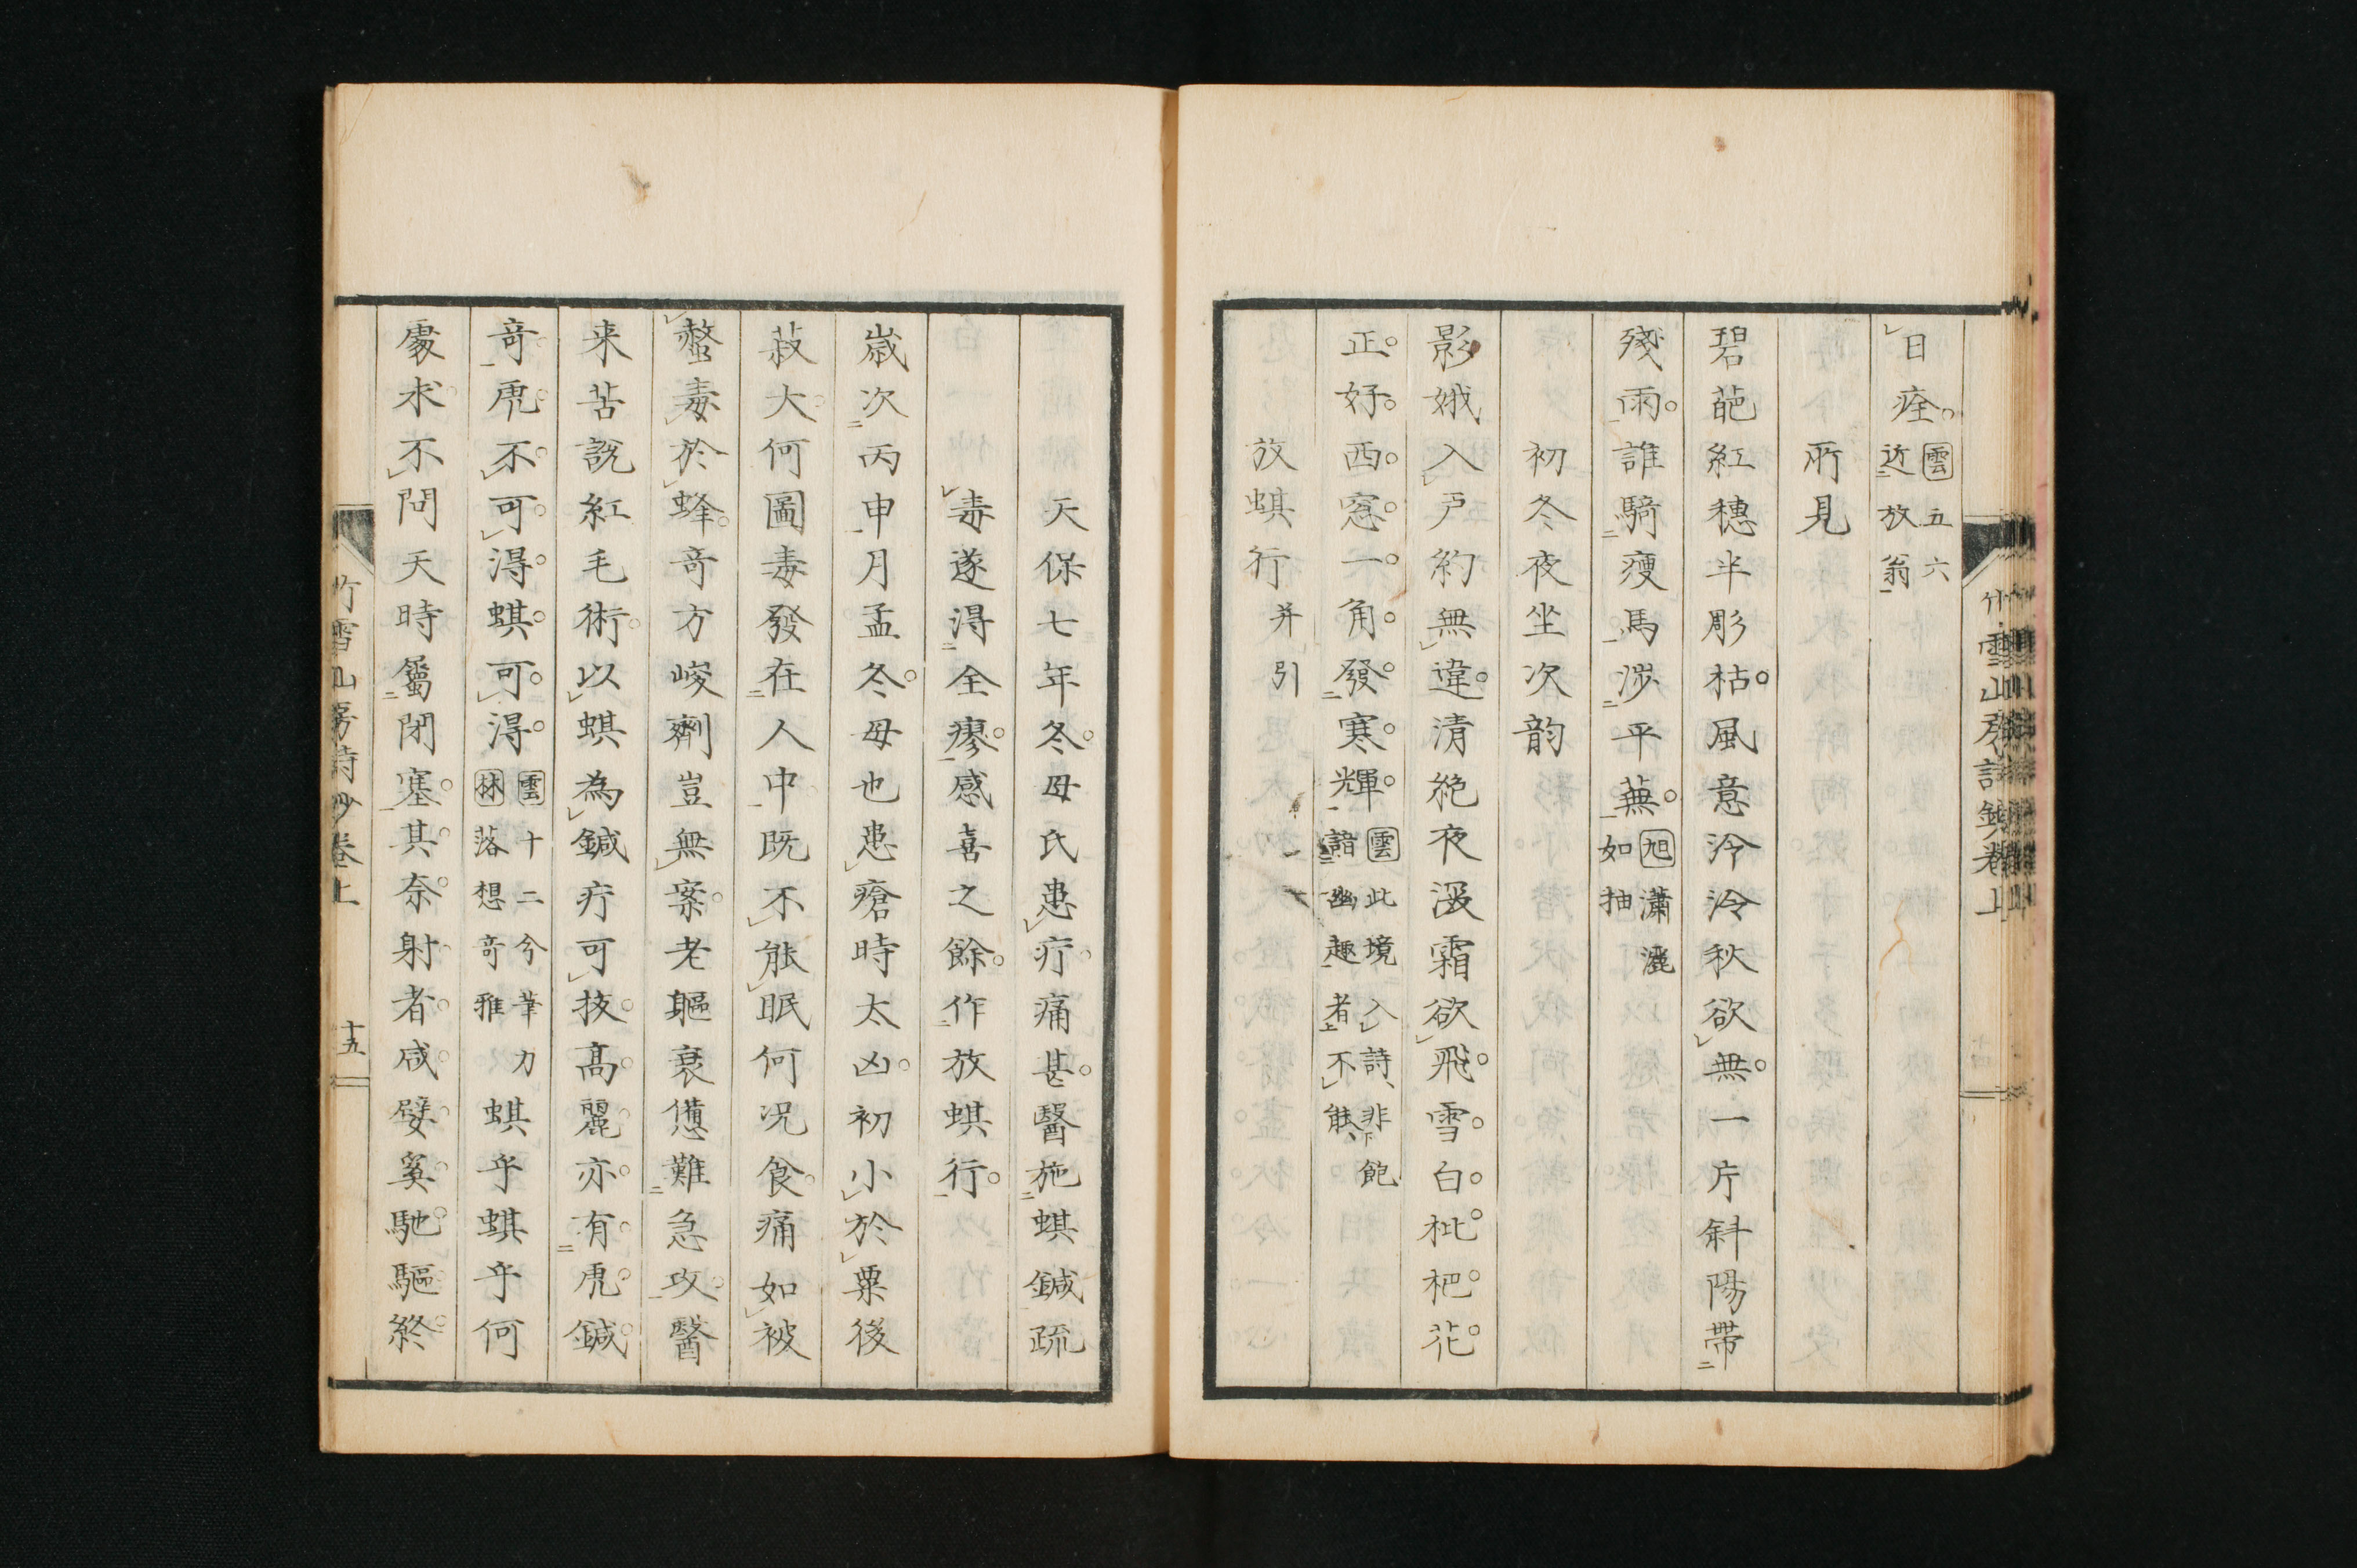 日痊雲五六近放翁
所見
碧葩紅穗半彫枯風意泠泠秋欲無一片斜陽帶
殘雨誰騎瘦馬渉平蕪旭瀟灑如抽
初冬夜坐次韵
影娥入戸約無違清絶夜深霜欲飛雪白枇杷花
正好西窓一角發寒輝雲此境入詩非飽諳幽趣者不能
放蜞行并引
竹雪山房詩鈔卷上
天保七年冬母氏患疔痛甚醫施蜞鍼疏
毒遂得全瘳感喜之餘作放蜞行
歳次丙申月孟冬母也患瘡時太凶初小於粟後
菽大何圖毒發在人中既不能眠何況食痛如被
螫毒於蜂奇方峻劑豈無案老軀衰憊難急攻醫
来苦說紅毛術以蜞為鍼疔可抜高麗亦有虎鍼
奇虎不可得蜞可得雲十二兮筆力林落想奇雅蜞乎蜞乎何
處求不問天時屬閉塞其奈射者咸躄奚馳驅終
竹雪山房詩鈔卷上
十五